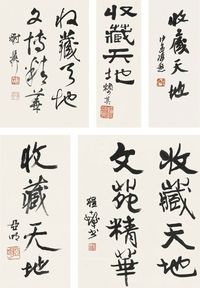 收藏天地
文博精華
收藏天地
收藏天地
收藏天地
亚明
收藏天地
文苑精華
程十髮书